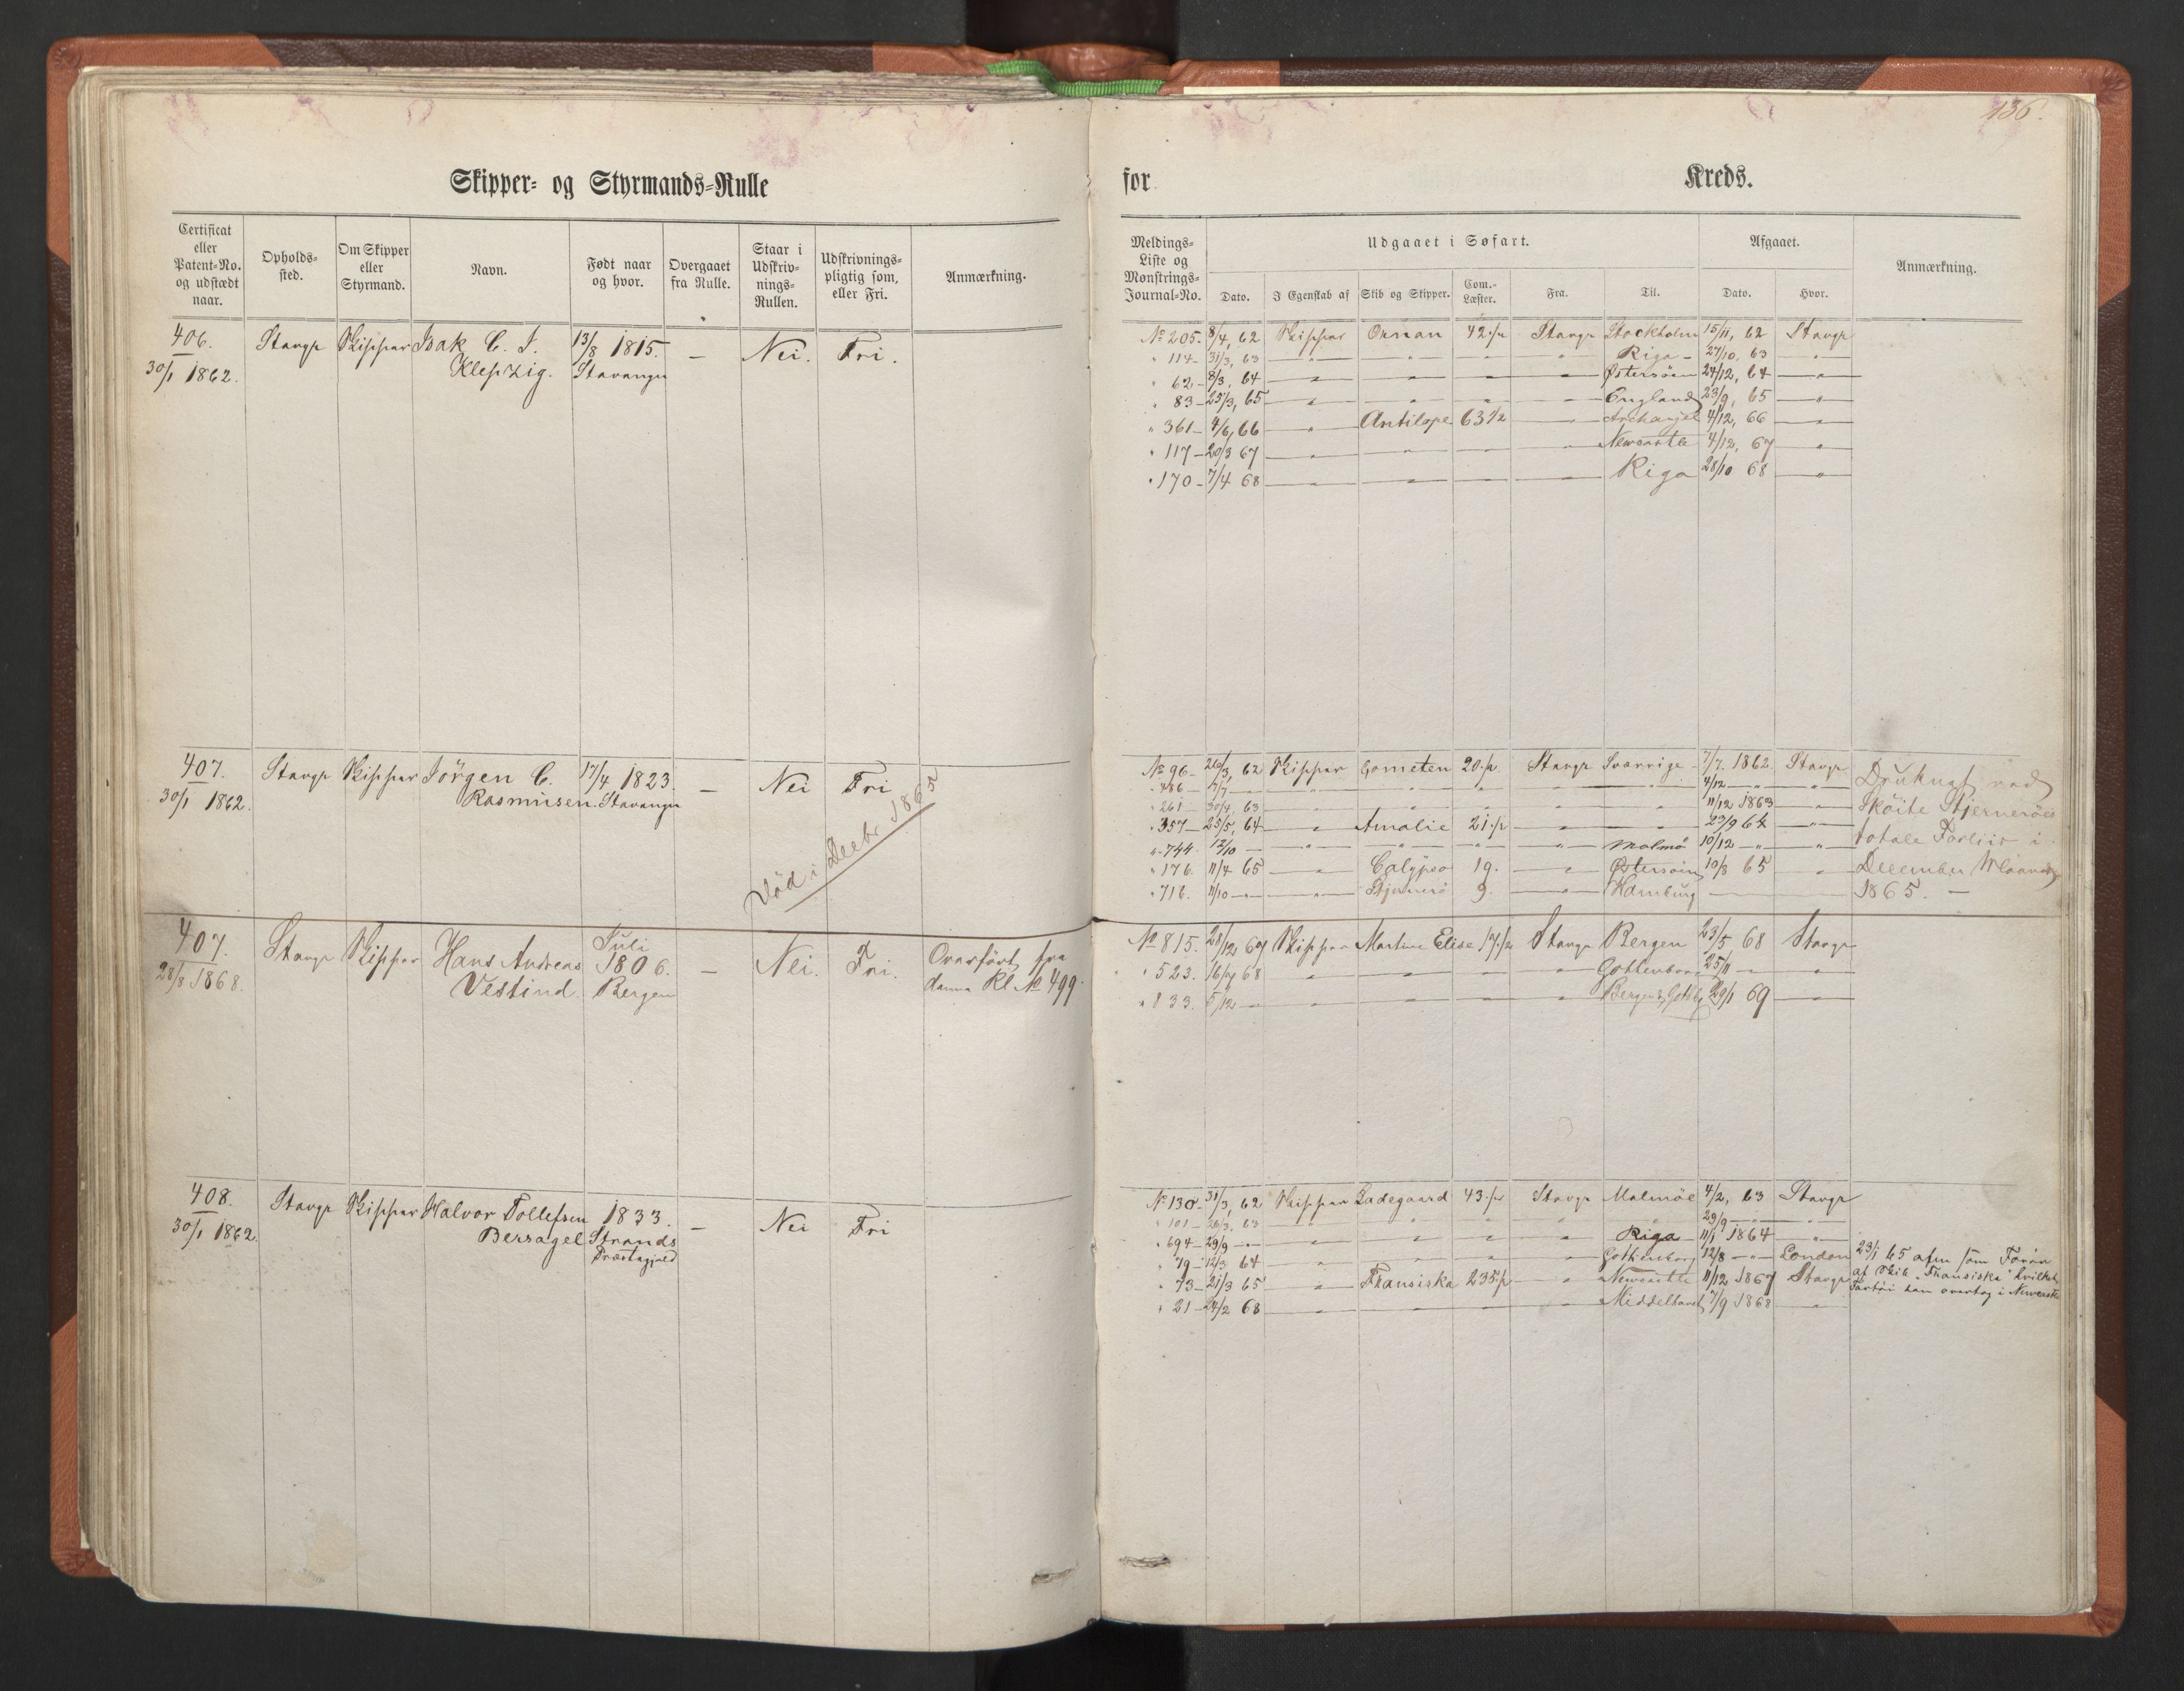 136.
Skipper- og Styrmands-Rulle
for
Kreds.
Certificat eller Patent-No. og udstædt naar.
Opholds-sted.
Om Skipper eller Styrmand.
Navn.
Født naar og hvor.
Overgaaet fra Rulle.
Staar i Udskriv-nings-Rullen.
Udskrivnings-pligtig som, eller Fri.
Anmærkning.
Meldings-Liste og Mønstrings-Journal-No.
Udgaaet i Søfart.
Afgaaet.
Anmærkning.
Dato.
I Egenskab af
Skib og Skipper.
Com.-Læster.
Fra.
Til.
Dato.
Hvor.
406. Stavgr Skipper Isak C. I. 13/8 1815. — Nei. Fri.
30/1 1862. Klepzig. Stavanger
No 205. 8/4, 62 Skipper Ornan 42 1/2 Stavgr Stockholm 15/11, 62 Stavgr
" 114 - 31/3, 63 — " — " — " — " Riga - 27/10, 63 "
" 62 - 8/3, 64 — " — " — " — " Østersøen 24/12, 64 — "
" 83 - 25/3, 65 — " — " — " — " England 23/9, 65 "
" 361 - 4/6, 66 " Antilope 63 1/2 — Archangel 4/12, 66 — "
" 117 - 20/3 67 — " — " — " Newcastle 4/12, 67 "
" 170 - 7/4 68 — " — " — " — " Riga 28/10 68 — "
407. Stavgr Skipper Jørgen C. 17/4 1823. — Nei Fri
30/1 1862. Rasmusen. Stavanger
Død i Decbr 1865
No 96 - 26/3, 62 Skipper Cometen 20 1/2 Stavgr Sverrige - 7/7. 1862. Stavgr
" 486 - 7/7 — " — " — " 4/12 — " — "
" 261 - 30/4, 63 — " — " — " 11/12 1863 — "
" 357 - 25/5, 64 — " Amalie 21 1/2 — " — " 23/9 64 — "
" 744. 12/10 — " — " — " — " Malmø 10/12 — " "
" 176. 11/4 65 — " Calypso 19. — " Østersøen 10/8 65 "
" 716. 11/10 — " — " Stjernerø 9. — " Hamburg
Druknet ved
Skøite Stjernerøes
totale Forliis i
December Maaned
1865. —
407. Stavgr Skipper Hans Andreas Juli 1806. — Nei. Fri. Overført fra
28/8 1868. Vestind. Bergen denne Rl No 499.
No 815. 28/12 67 Skipper Martine Elise 17 1/2 Stavgr Bergen 23/5 68 Stavgr
" 523. 16/7 68 — " — " — " — " Gottenborg 25/11 — "
" 833. 5/12 — " — " — " — " Bergen & Gotbg 29/1 69 — "
408. Stavgr Skipper Halvor Tollefsen 1833. — Nei Fri
30/1 1862. Bersagel Strands
Præstegjeld
No 130 - 31/3, 62 Skipper Ladegaard 43 1/2 Stavgr Malmøe 4/2, 63 Stavgr
" 101 - 26/3. 63 " " " " 29/9 — "
" 694 - 29/9 — " " " " " Riga - 11/1 1864 "
" 79 - 12/3 64 " " " " Gothenborg 12/8 — " London
" 73 - 21/3 65 — " Fransiska 235 1/2 — " Newcastle 11/12 1867 Stavgr
" 21 - 24/2 68 — " — " Middelhavet 7/9 1868 "
23/1 65 afm som Fører
af Skib "Fransiska" hvilket
Fartøi han overtog i Newcastle